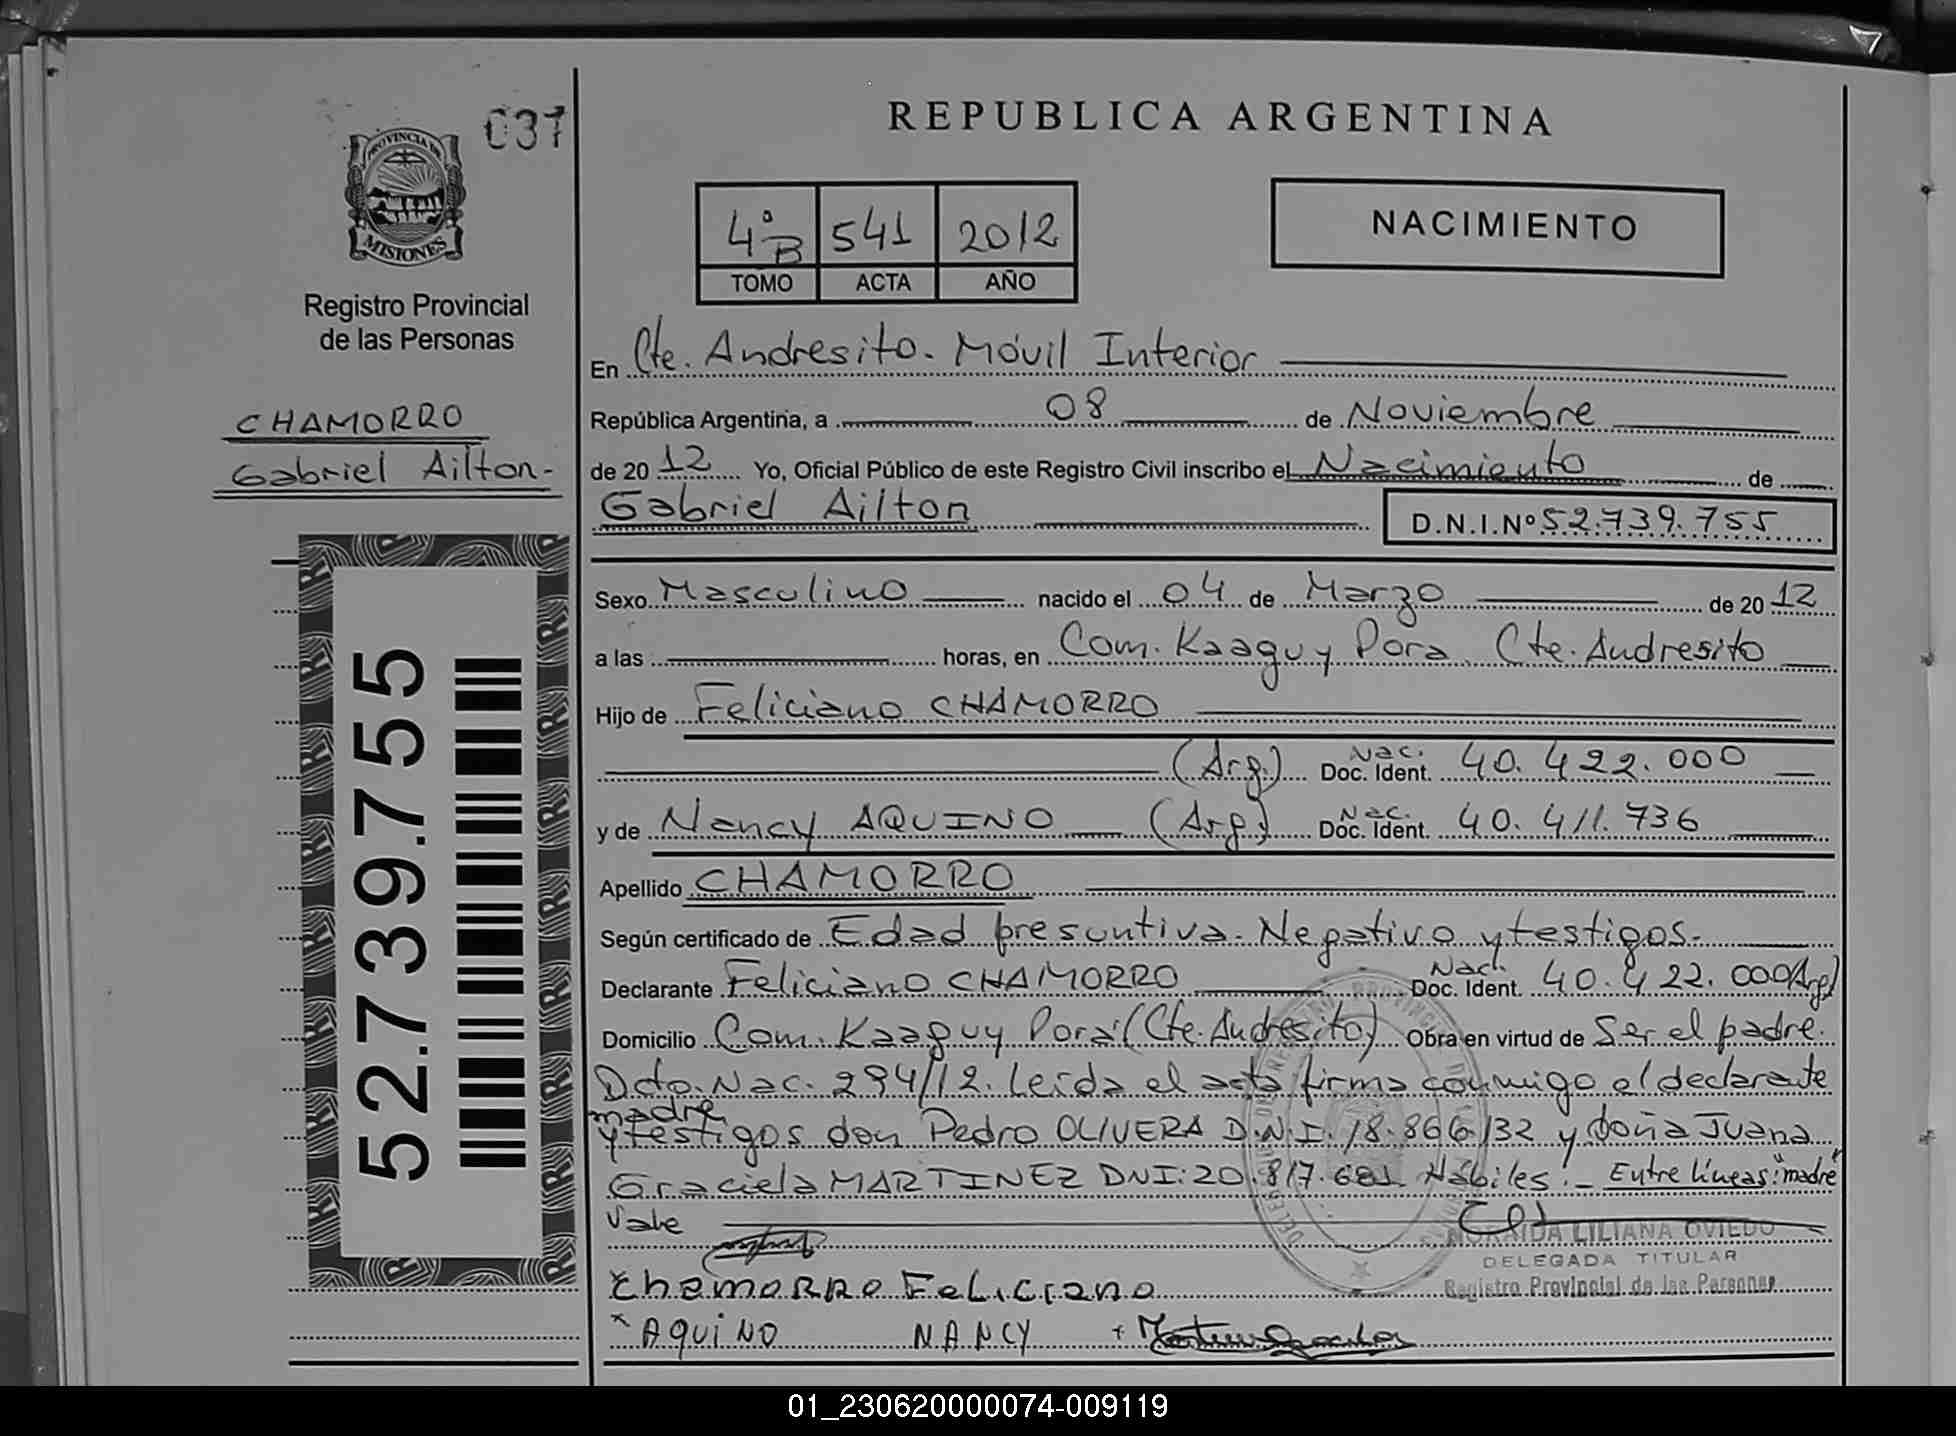 037
PROVINCIA DE
MISIONES
Registro Provincial
de las Personas
CHAMORRO
Gabriel Ailton-
52.739.755
REPUBLICA ARGENTINA
4ª B 541 2012
TOMO ACTA AÑO
NACIMIENTO
En Cte. Andresito. Móvil Interior
República Argentina, a 08 de Noviembre
de 2012 Yo, Oficial Público de este Registro Civil inscribo el Nacimiento de
Gabriel Ailton D.N.I.Nº 52.739.755
Sexo Masculino nacido el 04 de Marzo de 2012
a las horas, en Com. Kaaguy Pora Cte. Andresito
Hijo de Feliciano CHAMORRO
(Arg.) Nac. Doc. Ident. 40.422.000
y de Nancy AQUINO (Arg) Nac. Doc. Ident. 40.411.736
Apellido CHAMORRO
Según certificado de Edad presuntiva. Negativo y testigos.
Declarante Feliciano CHAMORRO Nac. Doc. Ident. 40.422.000 (Arg)
Domicilio Com. Kaaguy Porá (Cte. Andresito) Obra en virtud de Ser el padre.
Dcto. Nac. 294/12. Leída el acta firma conmigo el declarante
madre
y testigos don Pedro OLIVERA D.N.I. 18.866132 y doña Juana
Graciela MARTINEZ DNI: 20.817.681 Hábiles.- Entre líneas: "madre"
Vale
NORAIDA LILIANA OVIEDO
DELEGADA TITULAR
Registro Provincial de las Personas
Chamorro Feliciano
x AQUINO NANCY
01_230620000074-009119